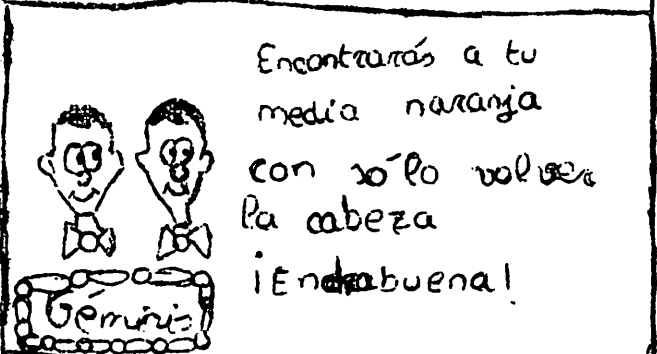 Encontrarás a tu
media naranja
con sólo volver
la cabeza
¡Enhorabuena!
Géminis